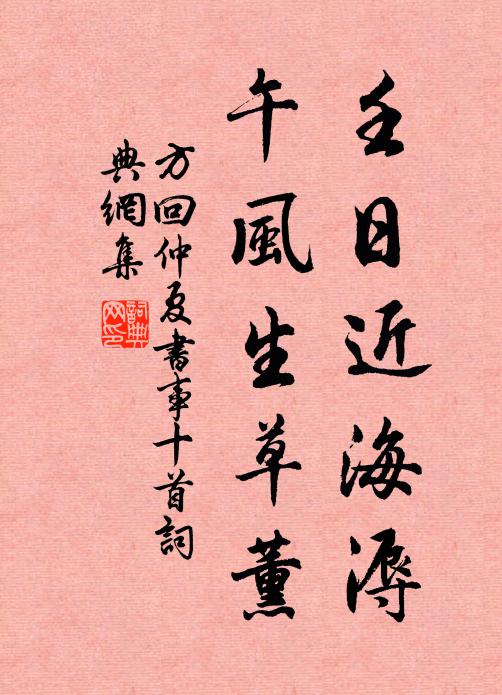 壬日近海溽
午風生草薰
方回仲夏書事十首詞
典網集
詞典网印